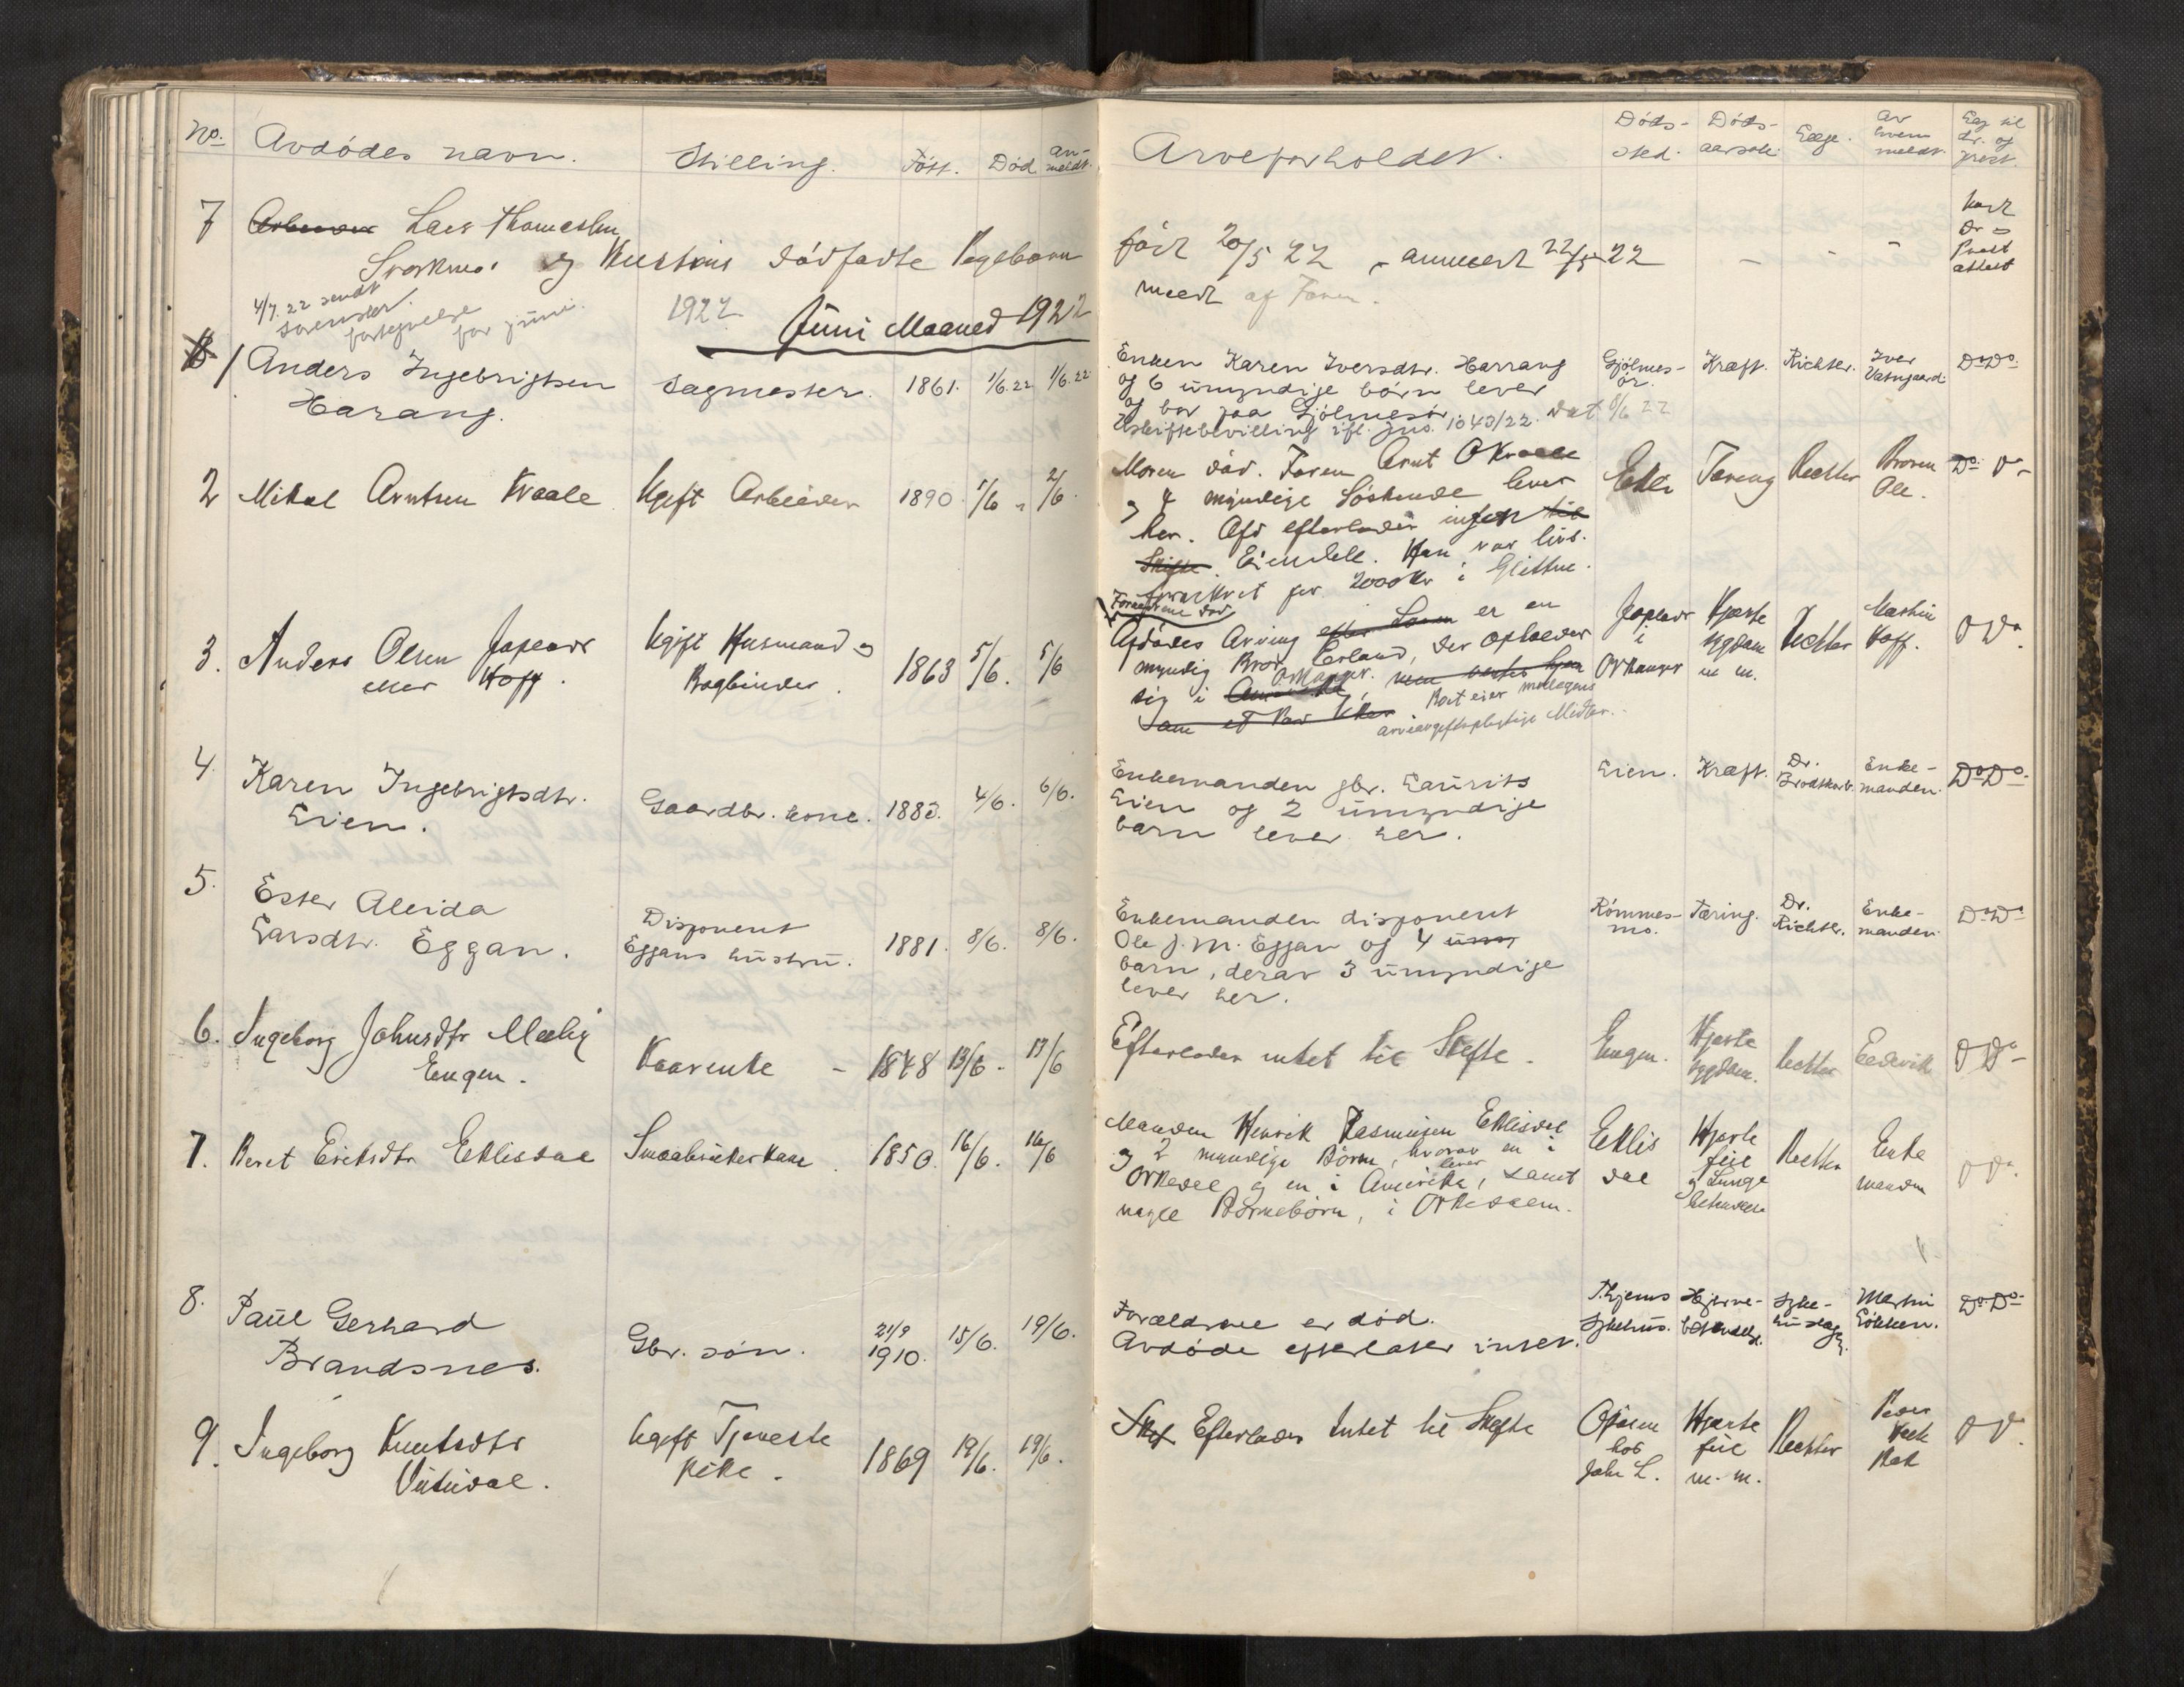 No. Avdødes navn. Stilling. Født. Død an-meldt. Arveforholdet. Døds-sted. Døds-aarsak. Læge. Av hvem meldt. Lag til dr. og prest.
7 Lars Thomassen
og dødfødte Pigebarn
født 20/5 22 - anmeldt 22/5 22 - - -
meldt af Faren.
Dr
Prest
attest
4/7 22 sendt
fortegnelse
for juni.
1922
Juni Maaned 1922
1 Anders Ingebrigtsen
Harang.
Sagmester. 1861. 1/6.22 1/6.22
Enken Karen Iversdtr. Harrang
og 6 umyndige børn lever
og bor paa Gjølmesør.
Uskiftebevilling ifl. jno. 1043/22. dat 8/6 22
Gjølmes-
ør.
Kræft. Richter. Iver
Vatngaard.
Do Do.
2 Mikal Arntsen Kvaale Ugift Arbeider 1890. 1/6 - 2/6.
Moren død. Faren Arnt O Kvaale
og 4 myndige Søskende lever
her. Afd efterlader ingen til
Skifte. Eiendele. Han var livs-
forsikret for 2000 Kr i
Ekli Tæring Richter Broren
Ole.
Do Do
3. Anders Olsen
eller Hoff.
Ugift Husmand og
Bogbinder.
1863 5/6. 5/6
Forældrene død
Afdødes Arving er en
myndig Bror Erland, der opholder
sig i Amerika, Orkanger.
som et Par
Boet eier
arveavgiftspligtige Midler.
i
Orkanger
Hjerte
sygdom
m m.
Richter
Hoff.
D Do
4. Karen Ingebrigtsdtr.
Eien.
Gaardbr. kone. 1883. 4/6. 6/6.
Enkemanden gbr. Laurits
Eien og 2 umyndige
barn lever her.
Eien. Kræft. Dr.
Brodtkorb.
Enke-
manden.
Do Do.
5. Ester Alvida
Larsdtr. Eggan.
Disponent
Eggans hustru.
1881. 8/6. 8/6.
Enkemanden disponent
Ole J. M. Eggan og 4 umy
barn, derav 3 umyndige
lever her.
Rømmes-
mo.
Tæring. Dr.
Richter.
Enke-
manden.
Do Do
6. Ingeborg Johnsdtr
Engen.
Kaarenke - 1848 13/6 - 13/6
Efterlader intet til Skifte -
Engen. Hjerte
sygdom.
Richter
D Do
7. Beret Eriksdtr Eklisdal Smaabrukerkone. 1850. 16/6. 16/6
Manden Henrik Rasmusen Eklisdal
og 2 myndige Børn, hvorav en i
Orkedal og en lever i Amerika, samt
nogle Børnebørn, i Orkedalen.
Eklis
dal
Hjerte
feil
og Lunge
betændelse
Richter Enke
manden
D Do.
8. Paul Gerhard
Brandsnes.
Gbr. søn. 21/9
1910. 15/6. 19/6.
Forældrene er død.
Avdøde efterlater intet.
Thjems
Sykehus.
Hjerne-
betændelse.
Syke-
huslæge.
Martin
Løkken.
Do Do
9. Ingeborg Knutsdtr
Ugift Tjeneste
Pike.
1869 19/6. 19/6.
Skif Efterlader Intet til Skifte
hos
John L.
Hjerte
feil
m. m.
Richter Peder
D Do.